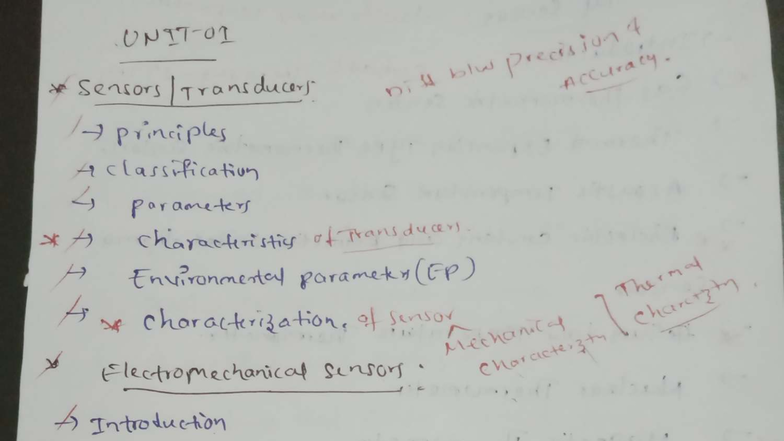 UNIT-01
Diff b/w precision &
Accuracy.
* Sensors/Transducers
→ principles
→ classification
→ parameters
* → characteristics of Transducers.
→ Environmental parameters (EP)
→ * characterization. of sensor
Mechanical
characterizⁿ
Thermal
characizⁿ
* Electromechanical sensors.
→ Introduction